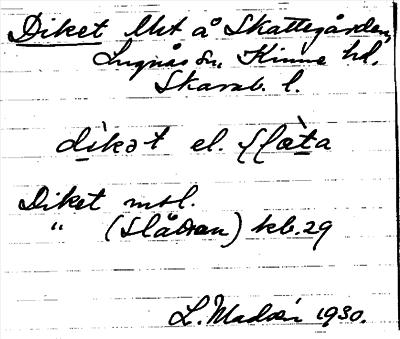 Diket Åkt å Skattegården,
Lugnås sn, Kinne hd.
Skarab. l.
dikət el. slæta
Diket mtl.
" (Slådan) kb. 29
L. Maden 1930.